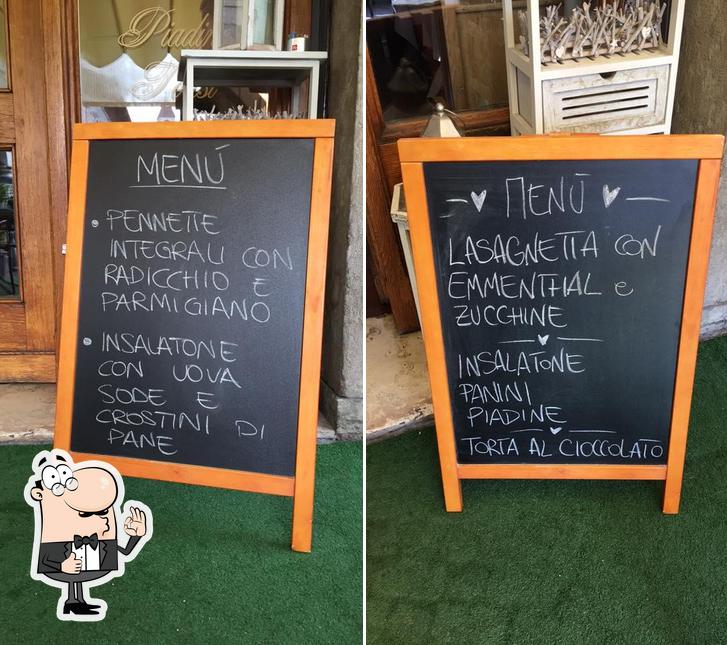 Piadi
MENÚ
PENNETTE
INTEGRALI CON
RADICCHIO E
PARMIGIANO
INSALATONE
CON UOVA
SODE E
CROSTINI DI
PANE
MENÚ
LASAGNETTA CON
EMMENTHAL e
ZUCCHINE
INSALATONE
PANINI
PIADINE
TORTA AL CIOCCOLATO